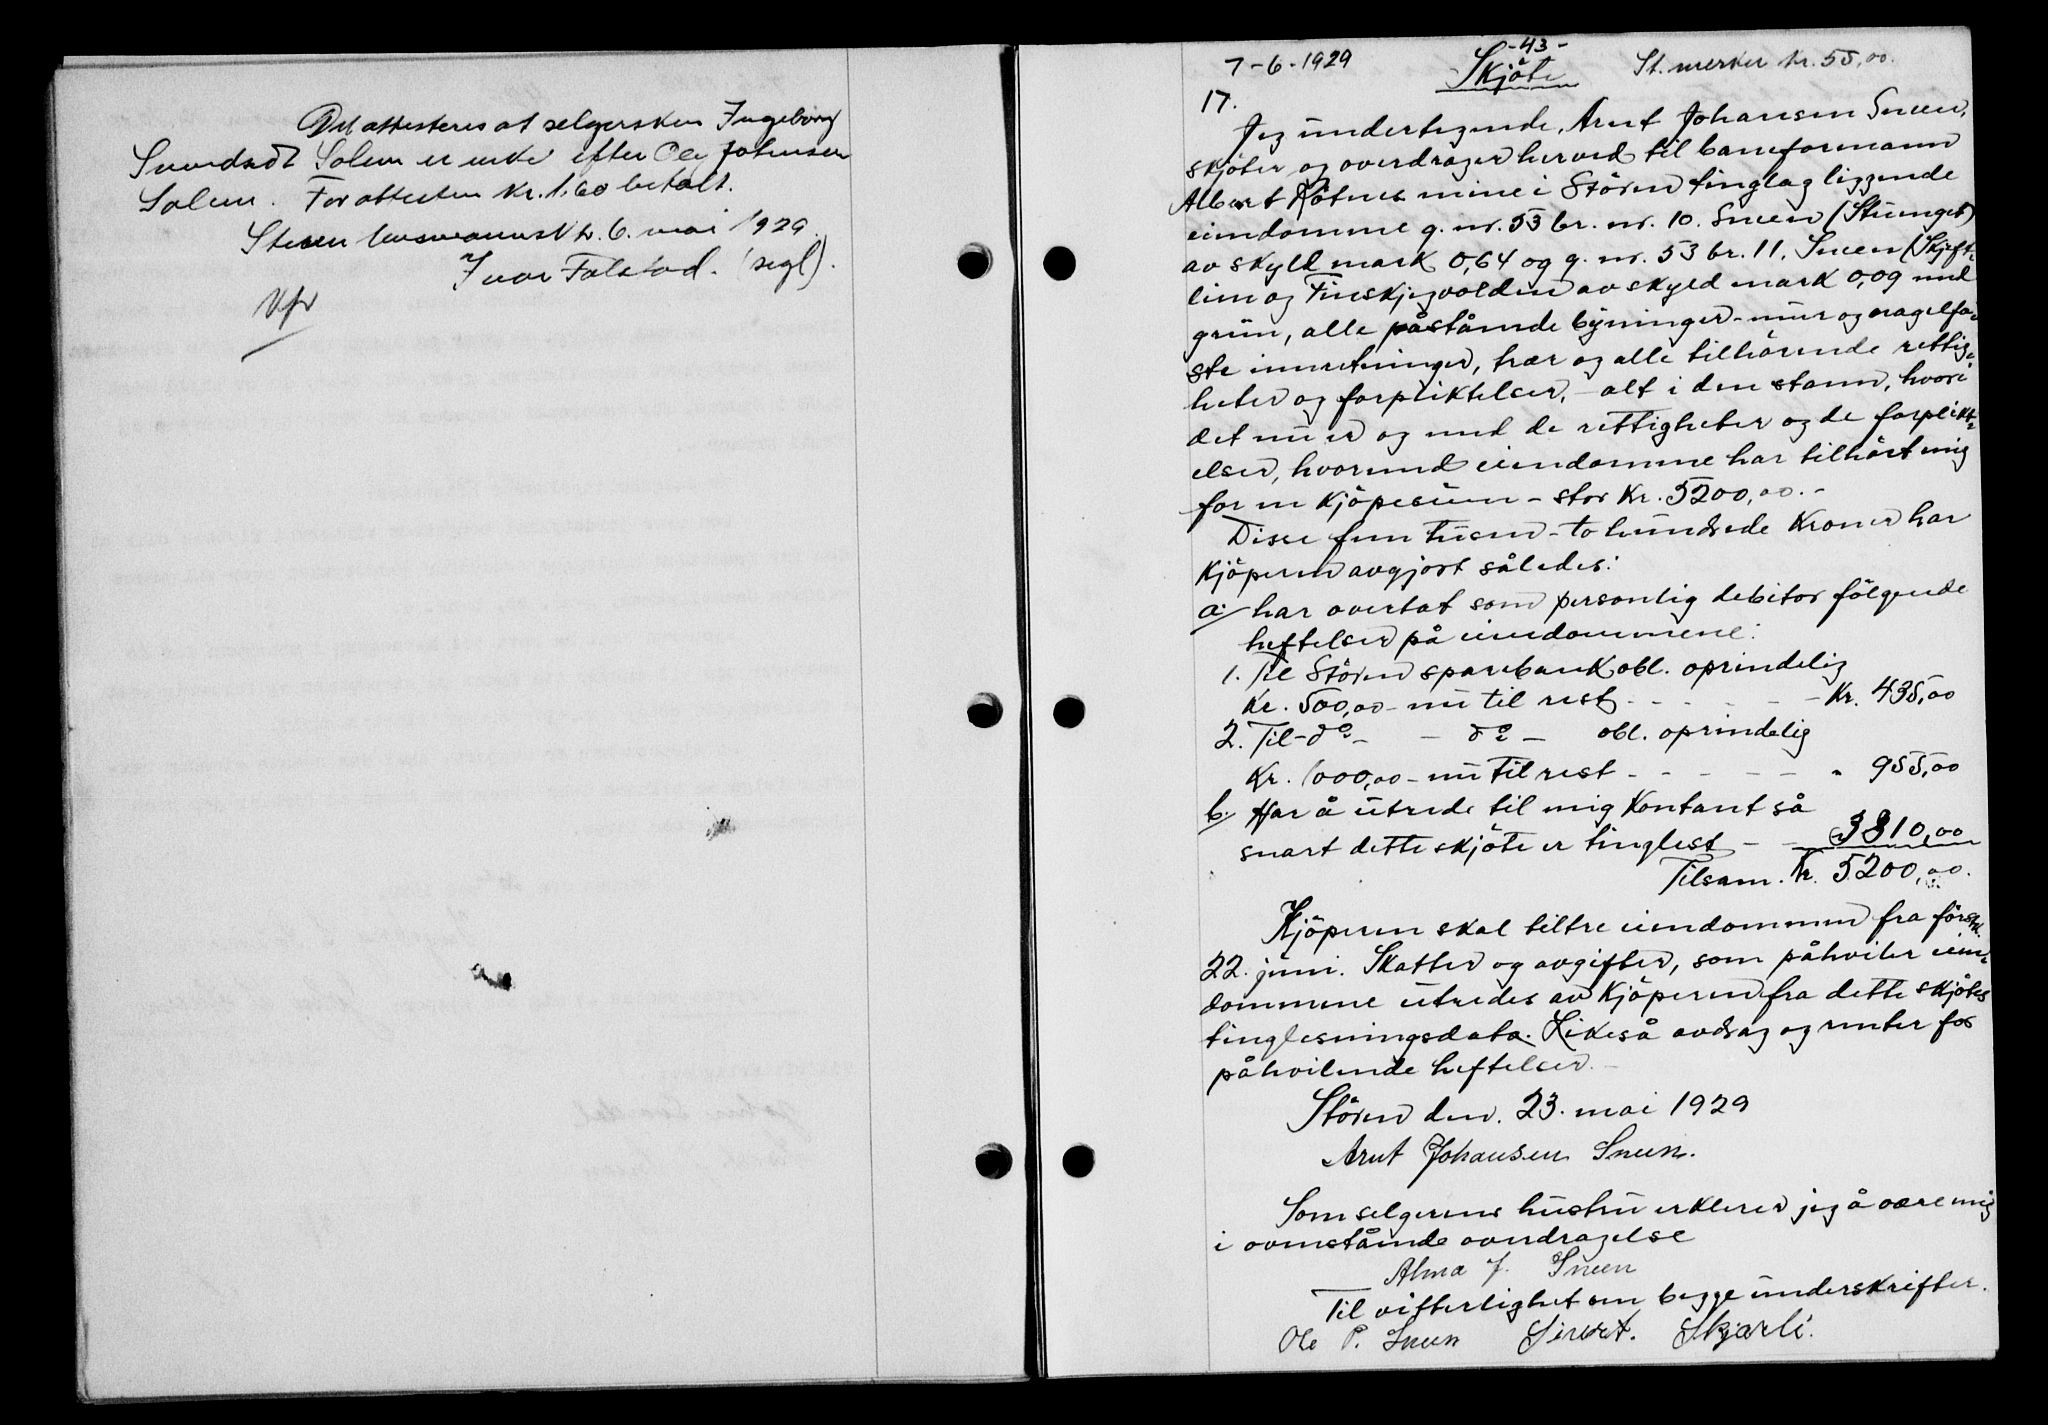 Det attesteres at selgersken Ingeborg
Svendsdt Solem er enke efter Ole Johnsen
Solem. For attesten Kr. 1.60 betalt.
Støren lensmannsk.tr. 6. mai 1929.
Ivar Folstad. (segl).
Vfr
7-6-1929
-43-
Skjöte
St. merker kr. 55,00.
17.
Jeg undertegnede, Arnt Johansen Sneen,
skjöter og overdrager herved til baneformann
Albert Rötnes mine i Stören tinglag liggende
eiendomme g. nr. 53 br. nr. 10. Sneen (Stuenget)
av skyld mark 0,64 og g. nr. 53 br. 11. Sneen (Skjeft-
lim og Finskjegvolden av skyld mark 0,09 med
grun, alle påstående byninger - mur og nagelfa-
ste innretninger, trær og alle tilhörende rettig-
heter og forpliktelser, - alt i den stann, hvori
det nu er og med de rettigheter og de forplikt-
elser, hvormed eiendomme har tilhört mig
for en kjöpesum - stor Kr. 5200,00.-
Disse fem tusen - to hundrede Kroner har
Kjöperen avgjort således:
a/ har overtat som personlig debitor fölgende
heftelser på eiendommene:
1. Til Stören sparebank obl. oprindelig
Kr. 500,00 - nu til rest - - - - - Kr. 435,00
2. Til - do - - do - obl. oprindelig
Kr. 1000,00 - nu til rest - - - - - " 955,00
b/ Har å utrede til mig Kontant så
snart dette skjöte er tinglest - - 3810,00
Tilsam. Kr. 5200,00.
Kjöperen skal tiltre eiendommen fra förstk.
22. juni. Skatter og avgifter, som påhviler eien-
dommene utredes av Kjöperen fra dette skjötes
tinglesningsdato. Likeså avdrag og renter for
påhvilende heftelser.-
Stören den. 23. mai 1929
Arnt Johansen Sneen.
Som selgerens hustru erklerer jeg å være enig
i ovenstående overdragelse
Alma J. Sneen
Til vitterlighet om begge underskrifter.
Ole P. Sneen Sivert. Skjærli.